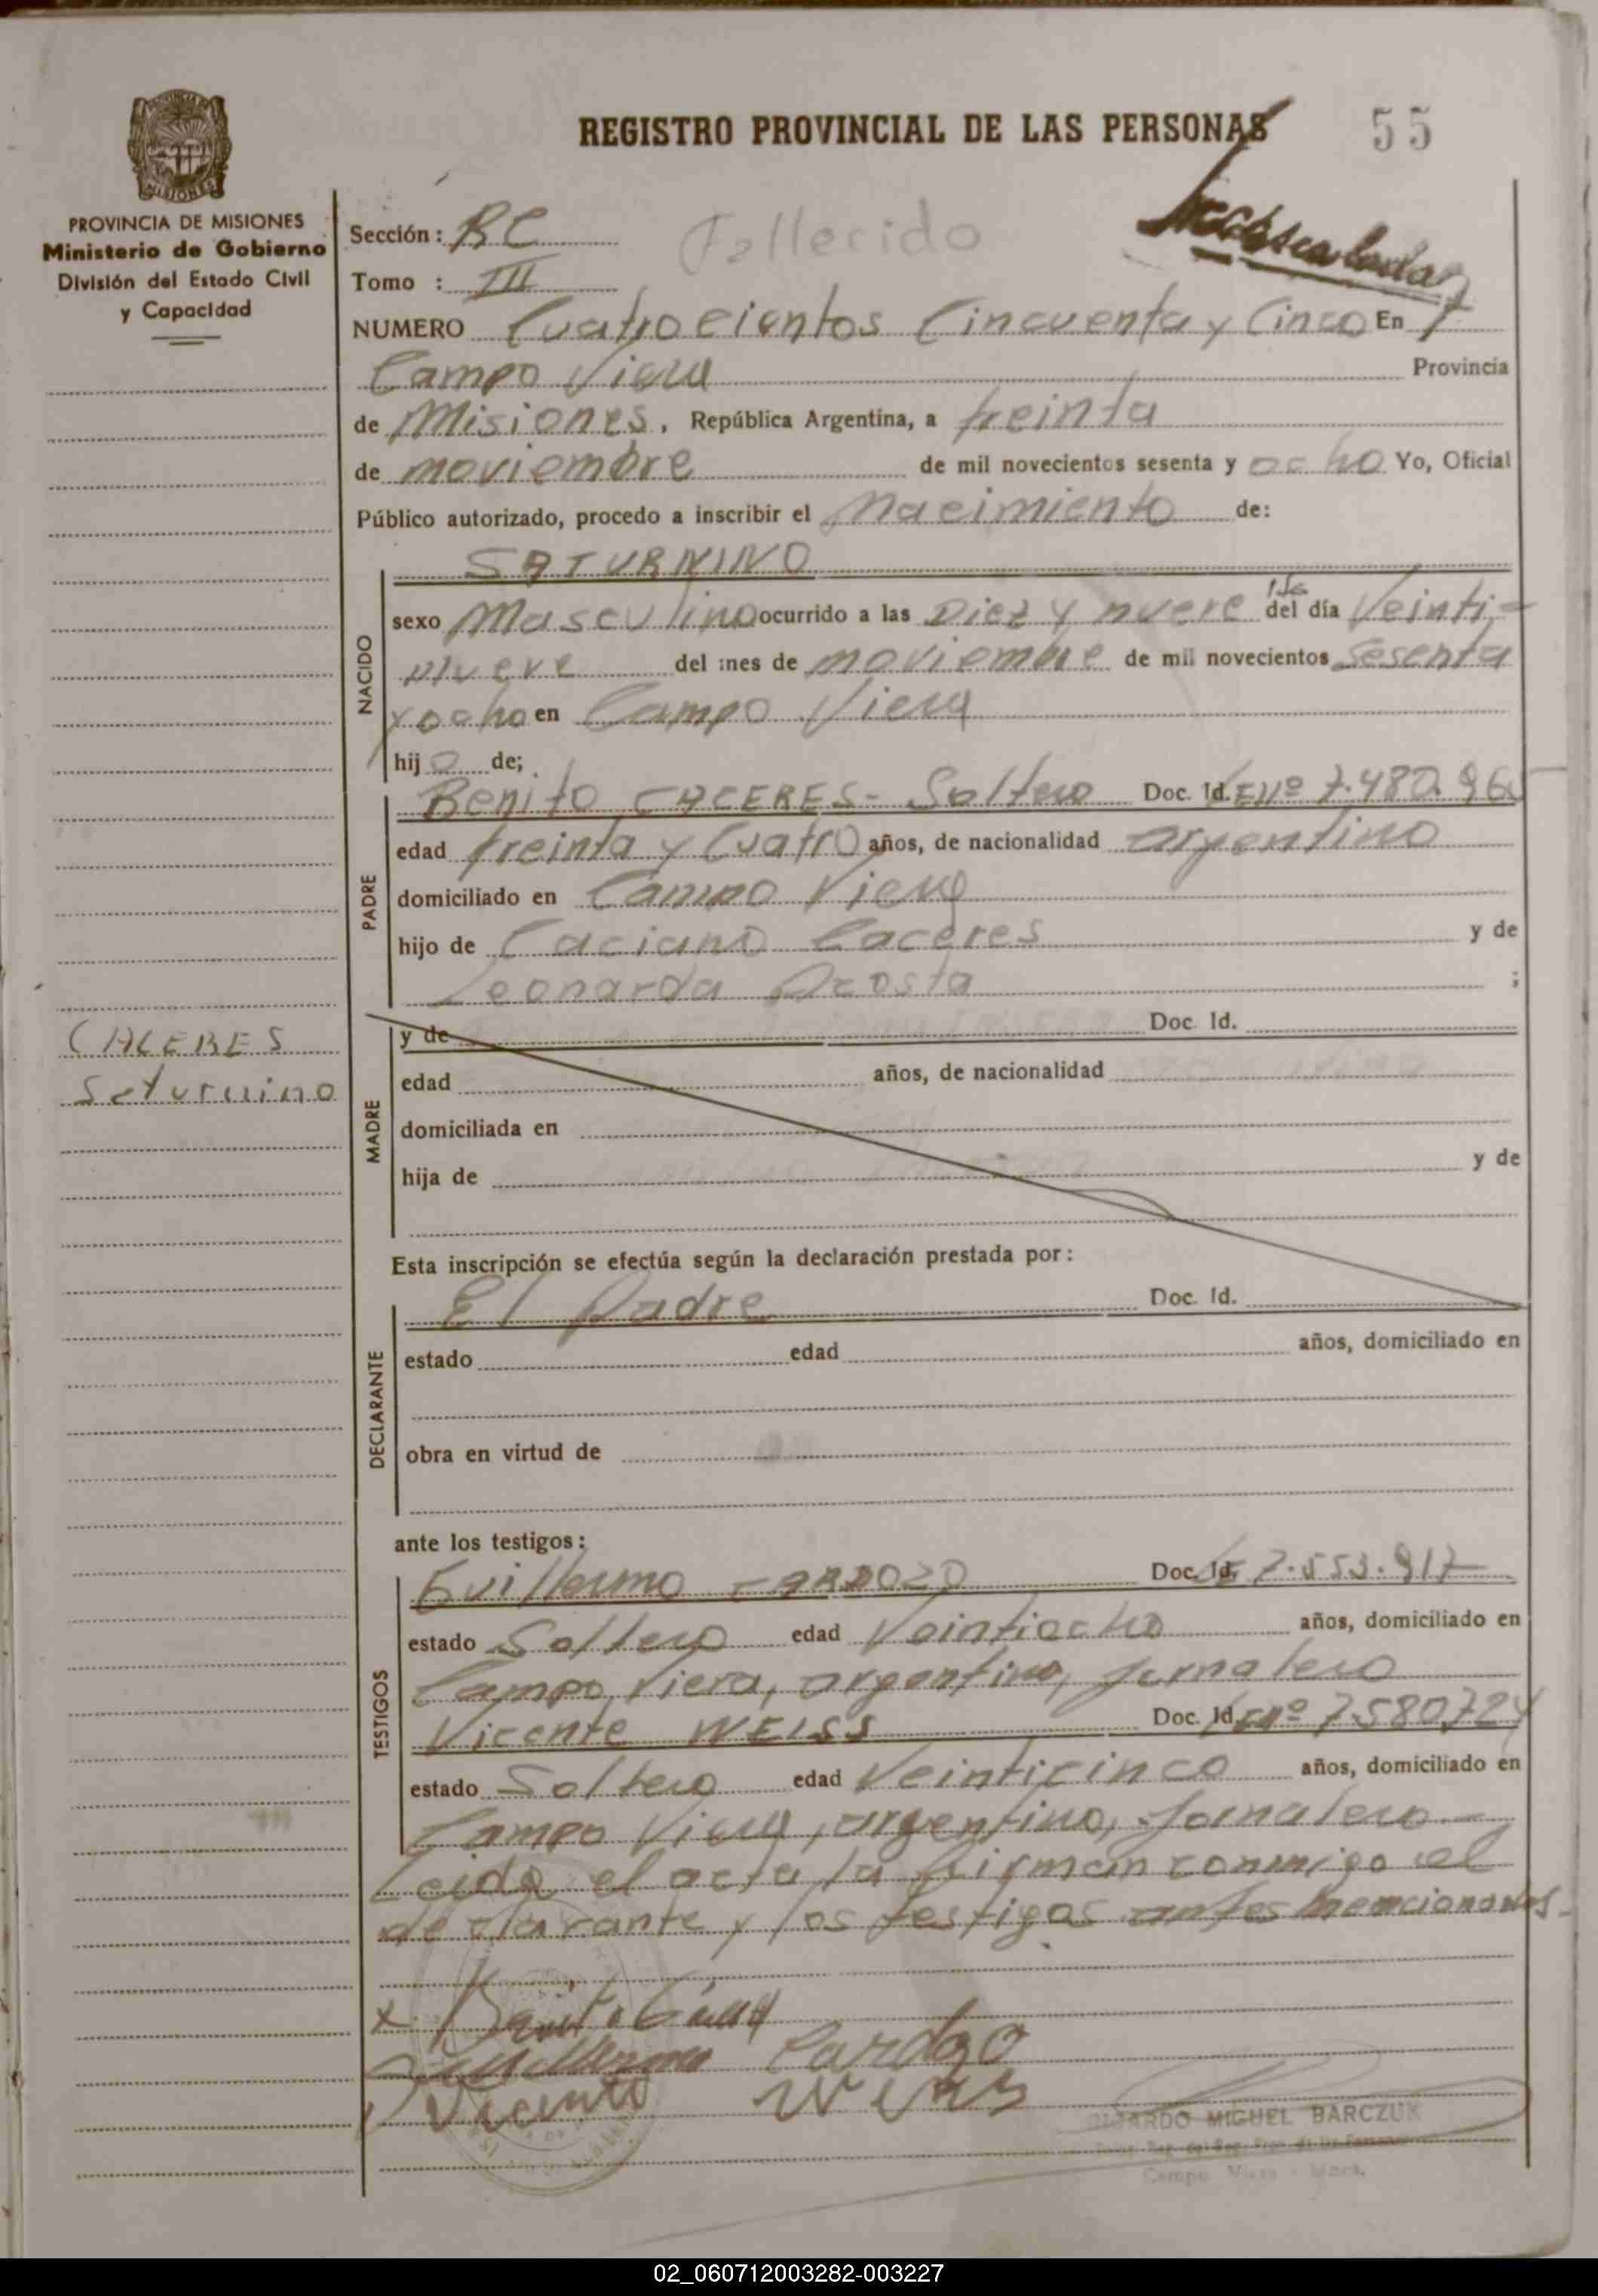 REGISTRO PROVINCIAL DE LAS PERSONAS
55
PROVINCIA DE MISIONES
Ministerio de Gobierno
División del Estado Civil
y Capacidad
Sección: RC
Fallecido
Tomo : III
NUMERO Cuatrocientos Cincuenta y Cinco En
Campo Viera Provincia
de Misiones, República Argentina, a treinta
de noviembre de mil novecientos sesenta y ocho Yo, Oficial
Público autorizado, procedo a inscribir el Nacimiento de:
NACIDO
SATURNINO
sexo Masculino ocurrido a las Diez y nueve hs del día Veinti-
nueve del mes de noviembre de mil novecientos sesenta
y ocho en Campo Viera
hijo de;
PADRE
Benito CACERES - Soltero Doc. Id. LE Nº 7.480.960
edad treinta y Cuatro años, de nacionalidad argentino
domiciliado en Campo Viera
hijo de Caciano Caceres y de
Leonarda Acosta ;
CACERES
Saturnino
MADRE
y de Doc. Id.
edad años, de nacionalidad
domiciliada en
hija de y de
Esta inscripción se efectúa según la declaración prestada por:
DECLARANTE
El Padre Doc. Id.
estado edad años, domiciliado en
obra en virtud de
ante los testigos:
TESTIGOS
Guillermo CARDOZO Doc. Id. LE 7.553.917
estado Soltero edad Veintiocho años, domiciliado en
Campo Viera, argentino, jornalero
Vicente WEISS Doc. Id. LE Nº 7.580.724
estado Soltero edad Veinticinco años, domiciliado en
Campo Viera, argentino, Jornalero -
Leida el acta la firman conmigo el
declarante y los testigos antes mencionados.-
x Benito
Guillermo Cardozo
Vicente Weiss
RICARDO MIGUEL BARCZUK
02_060712003282-003227